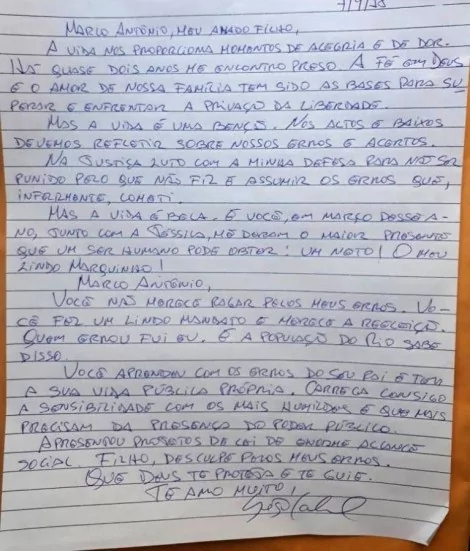 7/9/18
MARCO ANTÔNIO, MEU AMADO FILHO,
A VIDA NOS PROPORCIONA MOMENTOS DE ALEGRIA E DE DOR.
HÁ QUASE DOIS ANOS ME ENCONTRO PRESO. A FÉ EM DEUS
E O AMOR DE NOSSA FAMÍLIA TEM SIDO AS BASES PARA SU
PERAR E ENFRENTAR A PRIVAÇÃO DA LIBERDADE.
MAS A VIDA É UMA BENÇÃO. NOS ALTOS E BAIXOS
DEVEMOS REFLETIR SOBRE NOSSOS ERROS E ACERTOS.
NA JUSTIÇA LUTO COM A MINHA DEFESA PARA NÃO SER
PUNIDO PELO QUE NÃO FIZ E ASSUMIR OS ERROS QUE,
INFELIZMENTE, COMETI.
MAS A VIDA É BELA. E VOCÊ, EM MARÇO DESSE A-
NO, JUNTO COM A JÉSSICA, ME DERAM O MAIOR PRESENTE
QUE UM SER HUMANO PODE OBTER: UM NETO! O MEU
LINDO MARQUINHO!
MARCO ANTÔNIO,
VOCÊ NÃO MERECE PAGAR PELOS MEUS ERROS. VO-
CÊ FEZ UM LINDO MANDATO E MERECE A REELEIÇÃO.
QUEM ERROU FUI EU. E A POPULAÇÃO DO RIO SABE
DISSO.
VOCÊ APRENDEU COM OS ERROS DO SEU PAI E TEM
A SUA VIDA PÚBLICA PRÓPRIA. CARREGA CONSIGO
A SENSIBILIDADE COM OS MAIS HUMILDES E QUE MAIS
PRECISAM DA PRESENÇA DO PODER PÚBLICO.
APRESENTOU PROJETOS DE LEI DE ENORME ALCANCE
SOCIAL. FILHO, DESCULPE PELOS MEUS ERROS.
QUE DEUS TE PROTEJA E TE GUIE.
TE AMO MUITO!